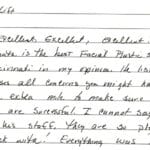 Life
Excellent, Excellent, excellent
is the best Facial Plastic S
cincinnati in my opinion. He
ses all concerns you might ha
extra mile to make sure
are Successful. I cannot say
his staff, they are so pl
k with! Everything was